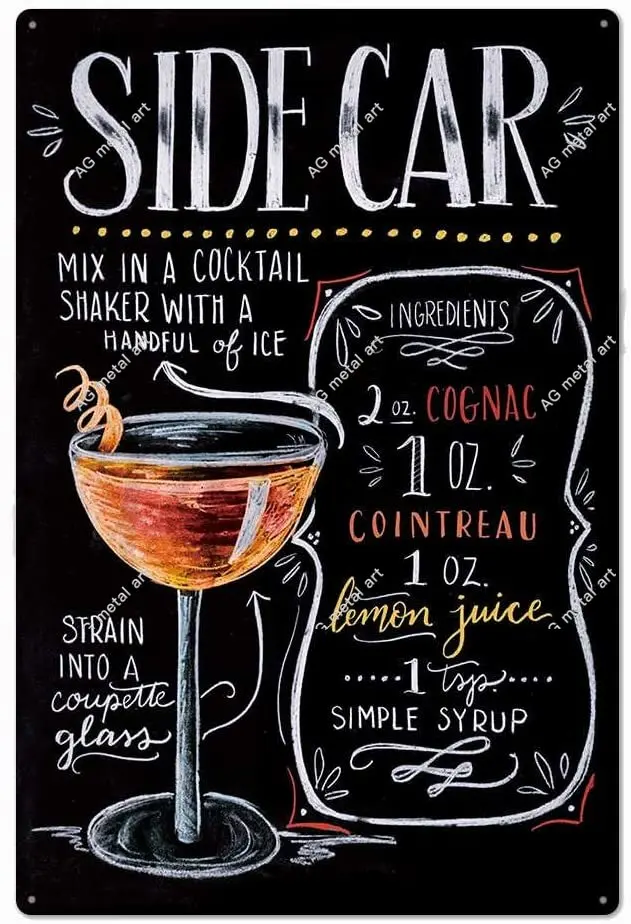 SIDE CAR
MIX IN A COCKTAIL
SHAKER WITH A
HANDFUL of ICE
INGREDIENTS
2 oz. COGNAC
1 OZ.
COINTREAU
1 OZ.
lemon juice
1 tsp.
SIMPLE SYRUP
STRAIN
INTO A
coupette
glass
AG metal art
AG metal art
AG metal art
AG metal art
AG metal art
AG metal art
AG metal art
metal art
metal art
metal art
metal art